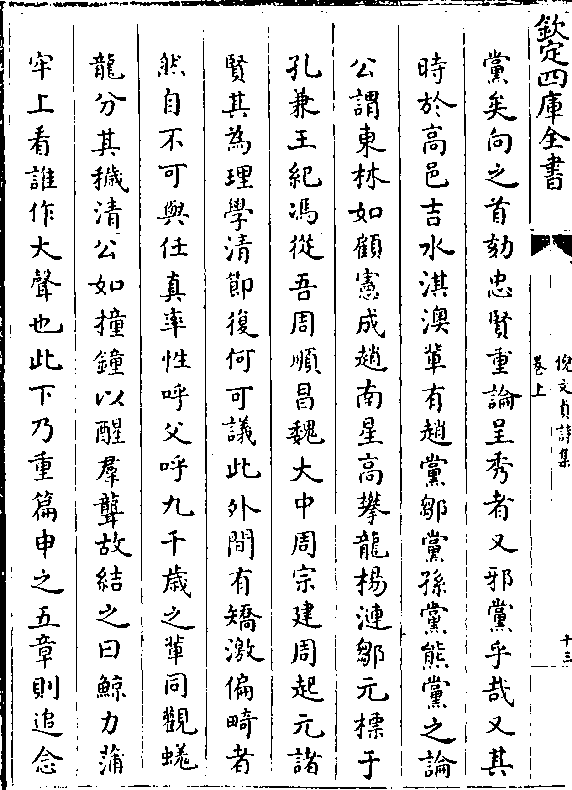 欽定四庫全書
倪文貞詩集
卷上
十三
黨矣向之首劾忠賢重論呈秀者又邪黨乎哉又其
時於高邑吉水淇澳輩有趙黨鄒黨孫黨熊黨之論
公謂東林如顧憲成趙南星高攀龍楊漣鄒元標于
孔兼王紀馮從吾周順昌魏大中周宗建周起元諸
賢其為理學清節復何可議此外間有矯激偏畸者
然自不可與任真率性呼父呼九千歳之輩同觀蟻
龍分其穢清公如撞鐘以醒羣聾故結之曰鯨力蒲
牢上看誰作大聲也此下乃重篇申之五章則追念